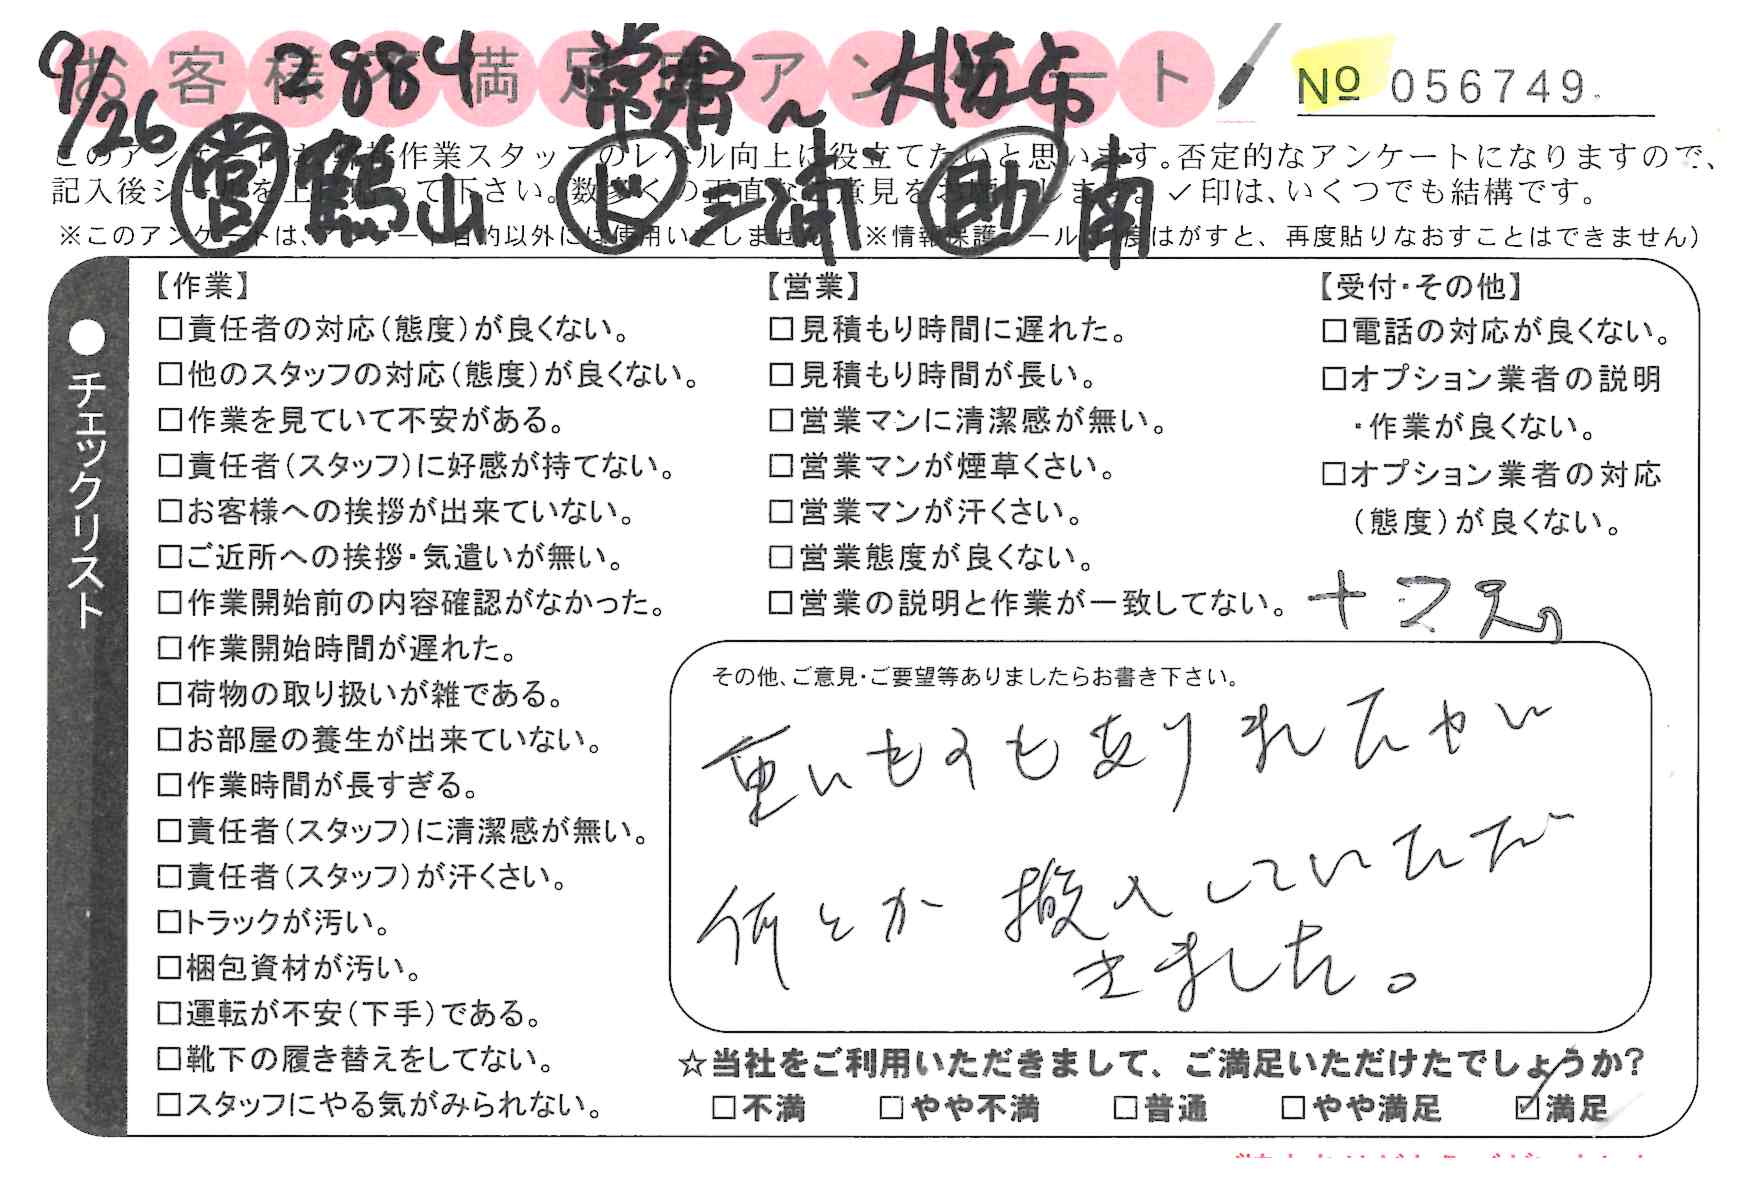 お客様 満足度アンケート
№ 056749
9/26 2884 常滑～大府市
営 鶴山 ド 三浦 助 南
このアンケートは、 作業スタッフのレベル向上に役立てたいと思います。否定的なアンケートになりますので、
記入後シールを上に貼って下さい。数多くの正直なご意見をお願いします。✓印は、いくつでも結構です。
※このアンケートは、アンケート目的以外には使用いたしません。(※情報保護シールは1度はがすと、再度貼りなおすことはできません)
●チェックリスト
【作業】
□責任者の対応(態度)が良くない。
□他のスタッフの対応(態度)が良くない。
□作業を見ていて不安がある。
□責任者(スタッフ)に好感が持てない。
□お客様への挨拶が出来ていない。
□ご近所への挨拶・気遣いが無い。
□作業開始前の内容確認がなかった。
□作業開始時間が遅れた。
□荷物の取り扱いが雑である。
□お部屋の養生が出来ていない。
□作業時間が長すぎる。
□責任者(スタッフ)に清潔感が無い。
□責任者(スタッフ)が汗くさい。
□トラックが汚い。
□梱包資材が汚い。
□運転が不安(下手)である。
□靴下の履き替えをしてない。
□スタッフにやる気がみられない。
【営業】
□見積もり時間に遅れた。
□見積もり時間が長い。
□営業マンに清潔感が無い。
□営業マンが煙草くさい。
□営業マンが汗くさい。
□営業態度が良くない。
□営業の説明と作業が一致してない。
【受付・その他】
□電話の対応が良くない。
□オプション業者の説明
・作業が良くない。
□オプション業者の対応
(態度)が良くない。
その他、ご意見・ご要望等ありましたらお書き下さい。
重いものもありましたが
何とか搬入していただ
きました。
☆当社をご利用いただきまして、ご満足いただけたでしょうか?
□不満 □やや不満 □普通 □やや満足 ☑満足